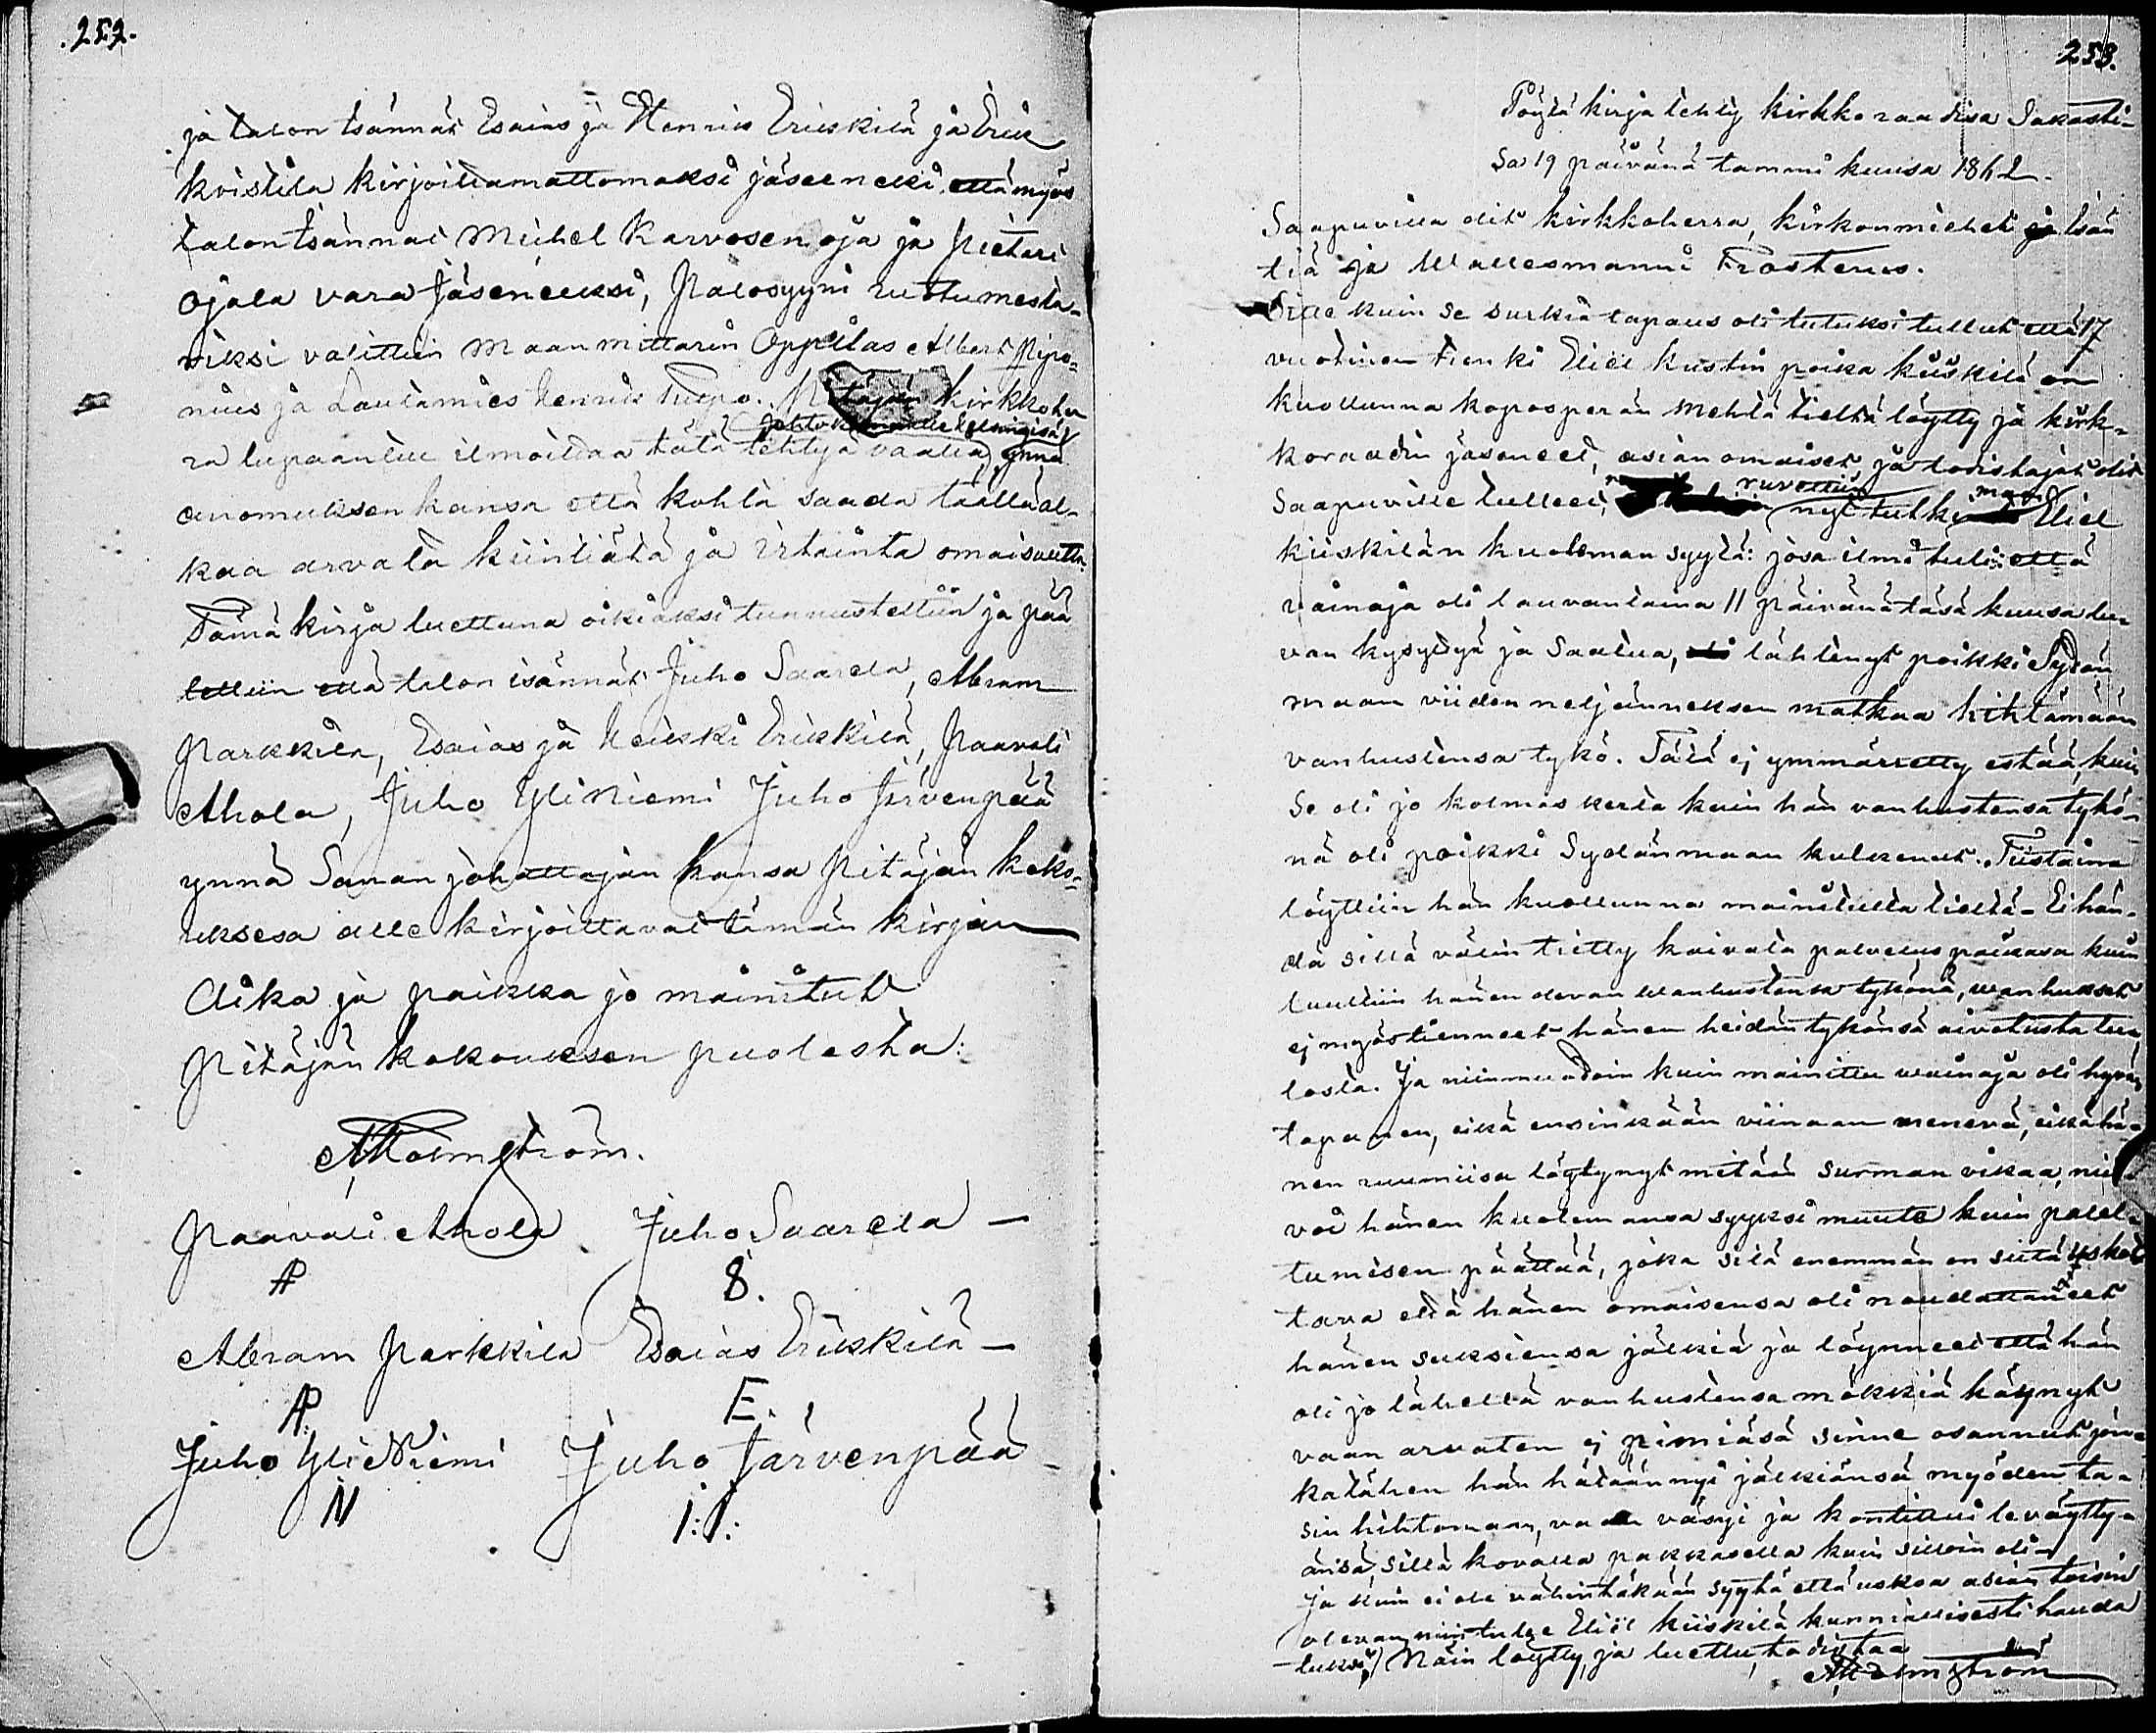 .252.
ja talon isännät Esaias ja Henric Erickilä ja Eric
Koistila kirjoittamattomaksi jäseneksi että myös
talon isännät Michel Karvosenoja ja Pietari
Ojala vara jäseneuksi, Palosyyni ruotumesta-
riksi valittiin Maanmittarin Oppilas Albert
nius ja Lautamies Henric Kirkkoher
ra lupaantui ilmoittaa tätä tehtyä vaalia ynnä
anomuksen kansa että kohta saada täällä al-
kaa arvata kiintiätä ja irtainta omaisuutta.
Tämä kirja luettuna oikiaksi tunnustettiin ja pää
tettiin että talon isännät Juho Saarela, Abram
Parkkila, Esaias ja Heikki Erickilä, Paavali
Ahola, Juho YliNiemi Juho Järvenpää
ynnä Sanan johattajan kansa Pitäjän koko-
uksesa alle kirjoittavat tämän kirjan
Aika ja paikka jo mainitut
Pitäjän kokouksen puolesta:
Paavali Ahola Juho Saarela —
AP S.
Abram Parkkila Esaias Erickilä —
AP. E.
Juho YliNiemi Juho Järvenpää
N I:I:
253.
Pöytä kirja tehty kirkkoraadisa Sakasti-
sa 19 päivänä tammi kuusa 1862.
Saapuvilla olit kirkkoherra, kirkonmiehet ja Isän
tiä ja Wallesmanni Frosterus.
Sitte kuin se surkia tapaus oli tutuksi tullut että 17
vuotinen renki Eliel Kustin poika Kiiskilä on
kuollunna Koposperän mehtä tieltä löytty ja kirk-
koraadin jäsenet, asian omaiset, ja todistajat olit
saapuville tulleet, ruvettiin nyt tutkimaan Eliel
Kiiskilän kuoleman syytä: josa ilmi tuli: että
vainaja oli lauvantaina 11 päivänä täsä kuusa lu-
van kysyttyä ja saatua, lähtenyt poikki Sydän
maan viiden neljänneksen matkaa hiihtämään
vanhustensa tykö. Tätä ej ymmärretty estää, kuin
se oli jo kolmas kerta kuin hän vanhustensa tykö-
nä oli poikki Sydänmaan kulkenut. Tiistaina
löyttiin hän kuollunna mainitulla tieltä – Ei hän-
dä sillä välin tietty kaivata palvelus paikasa kuin
luultiin hänen olevan wanhustensa tykönä, wanhukset
ej myös tienneet hänen heidän tykönsä aivotusta tu-
losta. Ja niinmuodoin kuin mainittu wainaja oli hyvän
tapanen, eikä ensinkään viinaan menevä, eikä hä-
nen ruumiisa löytynyt mitään surman vikaa, niin
voi hänen kuolemansa syyksi muuta kuin palel-
tumisen päättää, joka sitä enemmän on siitä uskot
tava että hänen omaisensa oli noudattaneet
hänen suksiensa jälkiä ja löynneet että hän
oli jo lähellä vanhustensa mökkiä käynyt
vaan arvaten ej pimiäsä sinne osannut jon-
katähen hän hätäännyi jälkiänsä myöden ta-
sin hiihtomaan, vaan väsyi ja kontittui leväytty-
äisä, sillä kovalla pakkasella kuin silloin oli –
Ja kuin ei ole vähintäkään syytä että uskoa asian toisin
olevan, niin tulee Eliel Kiiskilä kunniallisesti hauda
tuksi, Näin löytty, ja luettu, todistaa